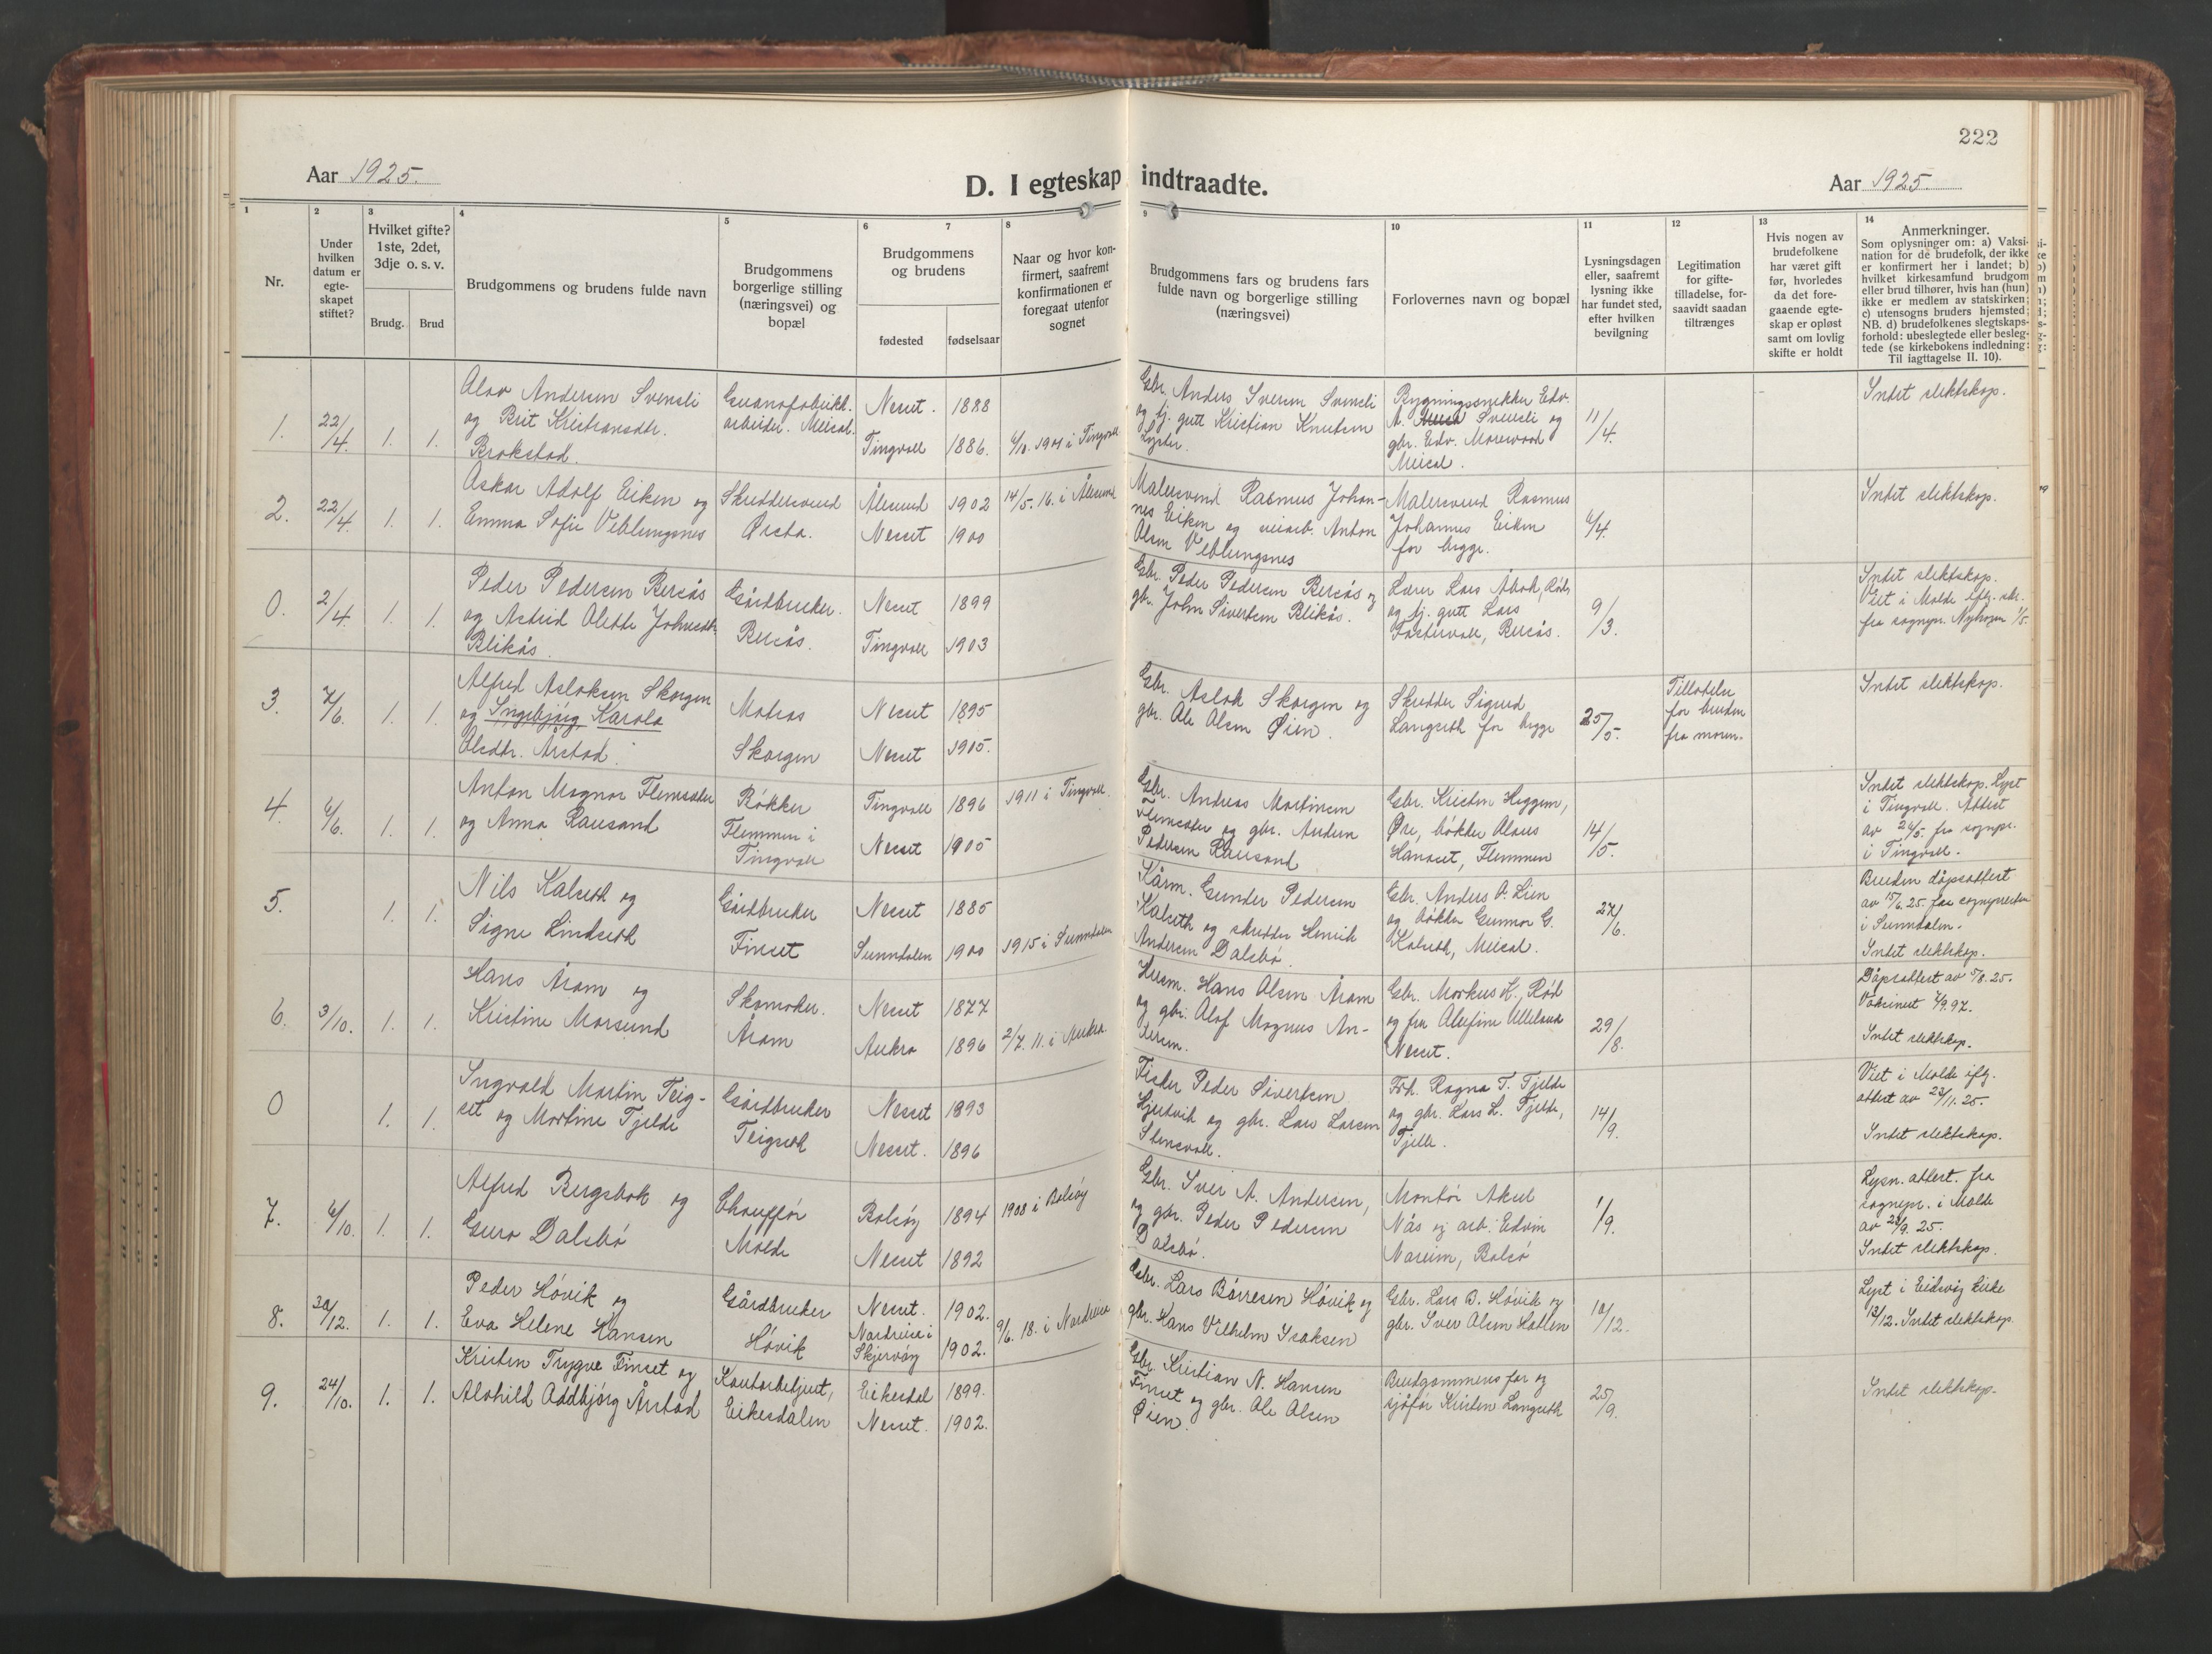 222
Aar 1925.
D. I egteskap indtraadte.
Aar 1925.
1
2
3
4
5
6
7
8
9
10
11
12
13
14
Nr.
Under
hvilken
datum er
egte-
skapet
stiftet?
Hvilket gifte?
1ste, 2det,
3dje o. s. v.
Brudg.
Brud
Brudgommens og brudens fulde navn
Brudgommens
borgerlige stilling
(næringsvei) og
bopæl
Brudgommens
og brudens
fødested
fødselsaar
Naar og hvor kon-
firmert, saafremt
konfirmationen er
foregaat utenfor
sognet
Brudgommens fars og brudens fars
fulde navn og borgerlige stilling
(næringsvei)
Forlovernes navn og bopæl
Lysningsdagen
eller, saafremt
lysning ikke
har fundet sted,
efter hvilken
bevilgning
Legitimation
for gifte-
tilladelse, for-
saavidt saadan
tiltrænges
Hvis nogen av
brudefolkene
har været gift
før, hvorledes
da det fore-
gaaende egte-
skap er opløst
samt om lovlig
skifte er holdt
Anmerkninger.
Som oplysninger om: a) Vaksi-
nation for de brudefolk, der ikke
er konfirmert her i landet; b)
hvilket kirkesamfund brudgom
eller brud tilhører, hvis han (hun)
ikke er medlem av statskirken;
c) utensogns bruders hjemsted;
NB. d) brudefolkenes slegtskaps-
forhold: ubeslegtede eller besleg-
tede (se kirkebokens indledning:
Til iagttagelse II. 10).
1.
22/4.
1.
1.
Olav Andersen Svensli
og Brit Kristiansdtr.
Brokstad.
Guanofabrikk-
arbeider. Meisal.
Nesset. 1888
Tingvoll 1886.
6/10. 1901 i Tingvoll
Gbr. Anders Iversen Svensli
og fj. gutt Kristian Knutsen
Lyster.
Bygningssnekker Edv.
A. Svensli og
gbr. Edv. Morewood
Meisal.
11/4.
Intet slektskap.
2.
22/4.
1.
1.
Oskar Adolf Eiken og
Emma Sofie Veblungsnes
Skreddersvend
Ørsta.
Ålesund 1902
Nesset 1900
14/5. 16. i Ålesund
Malersvend Rasmus Johan-
nes Eiken og veiarb. Anton
Olsen Veblungsnes
Malersvend Rasmus
Johannes Eiken
for begge.
6/4.
Intet slektskap.
0.
2/4.
1.
1.
Peder Pedersen Bersås
og Astrid Olette Johnsdtr.
Blikås.
Gårdbruker.
Bersås.
Nesset 1899
Tingvoll 1903
Gbr. Peder Pedersen Bersås og
gbr. John Sivertsen Blikås.
Lærer Lars Åbak, Rød
og fj. gutt Lars
Fostervoll, Bersås.
9/3.
Intet slektskap.
Viet i Molde iflg. skr.
fra sognepr. Nyhagen 1/5.
3.
7/6.
1.
1.
Alfred Aslaksen Skorgen
og Ingebjørg Karola
Olsdtr. Årstad.
Matros
Skorgen
Nesset 1895
Nesset 1905.
Gbr. Aslak Skorgen og
gbr. Ole Olsen Øien.
Skredder Sigurd
Langseth for begge
25/5.
Tillatelse
for bruden
fra moren.
Intet slektskap.
4.
6/6.
1.
1.
Anton Magnar Flemsæter
og Anna Rausand
Bøkker
Flemmen i
Tingvoll
Tingvoll 1896
Nesset 1905
1911 i Tingvoll.
Gbr. Andreas Martinsen
Flemsæter og gbr. Anders
Pedersen Rausand
Gbr. Kristen Heggem,
Øre, bøkker Olaus
Hanaset, Flemmen
14/5.
Intet slektskap. Lyst
i Tingvoll. Attest
av 26/5. fra sognepr.
i Tingvoll.
5.
1.
1.
Nils Kalseth og
Signe Lindseth
Gårdbruker
Finset
Nesset 1885
Sunndalen 1900
1915 i Sunndalen
Kårm. Gunder Pedersen
Kalseth og skredder Henrik
Andersen Dalsbø.
Gbr. Anders A. Lien
og bøkker Gunnar G.
Kalseth, Meisal.
27/6.
Bruden dåpsattest
av 15/6. 25. fra sognepresten
i Sunndalen.
Intet slektskap.
6.
3/10.
1.
1.
Hans Åram og
Kristine Morsund
Skomaker.
Åram
Nesset 1877
Aukra 1896
2/7. 11. i Aukra
Husm. Hans Olsen Åram
og gbr. Olaf Magnus An-
dersen.
Gbr. Markus K. Rød
og fru Olufine Ulleland
Nesset.
29/8.
Dåpsattest av 5/8. 25.
Vaksinert 7/9. 97.
Intet slektskap.
0
1.
1.
Ingvald Martin Teig-
set og Martine Tjelde
Gårdbruker
Teigseth
Nesset 1893
Nesset. 1896
Fisker Peder Sivertsen
Gjerdvik og gbr. Lars Larsen
Stensvoll.
Frk. Ragna T. Tjelde
og gbr. Lars L. Tjelde,
Tjelle.
14/9.
Viet i Molde iflg.
attest av 23/11. 25.
Intet slektskap.
7.
6/10.
1.
1.
Alfred Bergsbak og
Guro Dalsbø
Chauffør
Molde
Bolsøy 1894
Nesset 1892
1908 i Bolsøy
Gbr. Iver A. Andersen,
og gbr. Peder Pedersen
Dalsbø.
Montør Aksel
Nås og arb. Edvin
Mareim, Bolsø
1/9.
Lysn. attest. fra
sognepr. i Molde
av 28/9. 25.
Intet slektskap.
8.
30/12.
1.
1.
Peder Høvik og
Eva Helene Hansen
Gårdbruker
Høvik
Nesset. 1902.
Nordreisa i
Skjervøy 1902.
9/6. 18. i Nordreisa
Gbr. Lars Børresen Høvik og
gbr. Hans Vilhelm Isaksen
Gbr. Lars B. Høvik og
gbr. Iver Olsen Hatlen
10/12.
Lyst i Eidsvåg kirke
13/12. Intet slektskap.
9.
24/10.
1.
1.
Kristen Trygve Finset og
Alvhild Oddbjørg Årstad
Kontorbetjent,
Eikesdalen
Eikesdal 1899.
Nesset. 1902.
Gbr. Kristian N. Hansen
Finset og gbr. Ole Olsen
Øien.
Brudgommens far og
sjåfør Kristen Langseth
25/9.
Intet slektskap.